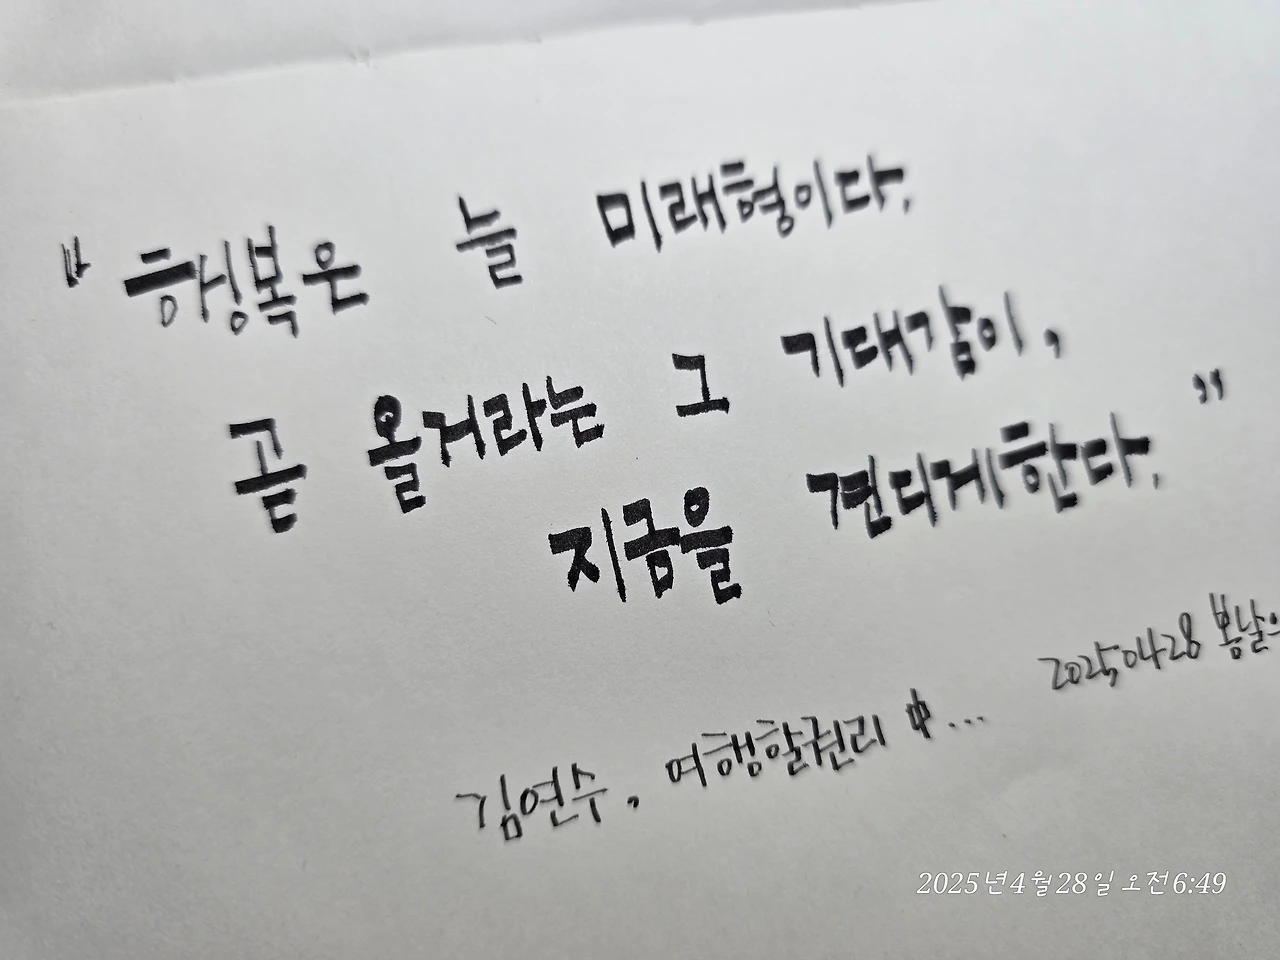 "행복은 늘 미래형이다.
곧 올거라는 그 기대감이,
지금을 견디게한다."
20250428 봄날의
김연수, 여행할권리 中...
2025년4월28일 오전6:49